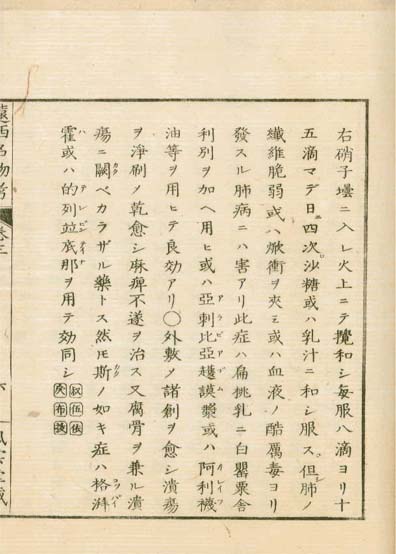 右硝子壜ニ入レ火上ニテ攪和シ毎服八滴ヨリ十
五滴マデ日ニ四次沙糖或ハ乳汁ニ和シ服ス但シ肺ノ
繊維脆弱或ハ焮衝ヲ夾ミ或ハ血液ノ酷厲毒ヨリ
發スル肺病ニハ害アリ此症ハ扁桃乳ニ白罌粟舎
利別ヲ加ヘ用ヒ或ハ亞刺比亞護謨漿或ハ阿利襪
油等ヲ用ヒテ良効アリ〇外敷メ諸創ヲ愈シ潰瘍
ヲ浄刷メ乾愈シ麻痺不遂ヲ治ス又腐骨ヲ兼ル潰
瘍ニ闕ベカラザル藥トス然モ斯ノ如キ症ハ格湃
霍或ハ的列並底那ヲ用テ効同シ
遠西名物考
卷三